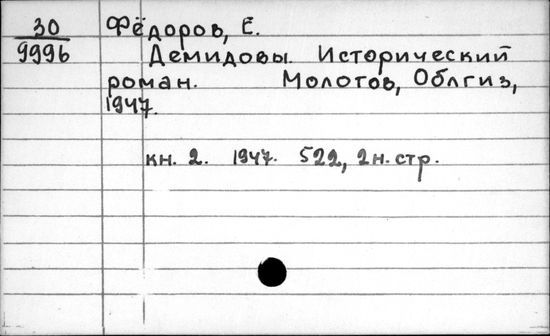 30 Фёдоров, Е.
9996 Демидовы. Исторический
роман. Молотов, Облгиз,
1947.
кн. 2. 1947. 522, 2 н. стр.